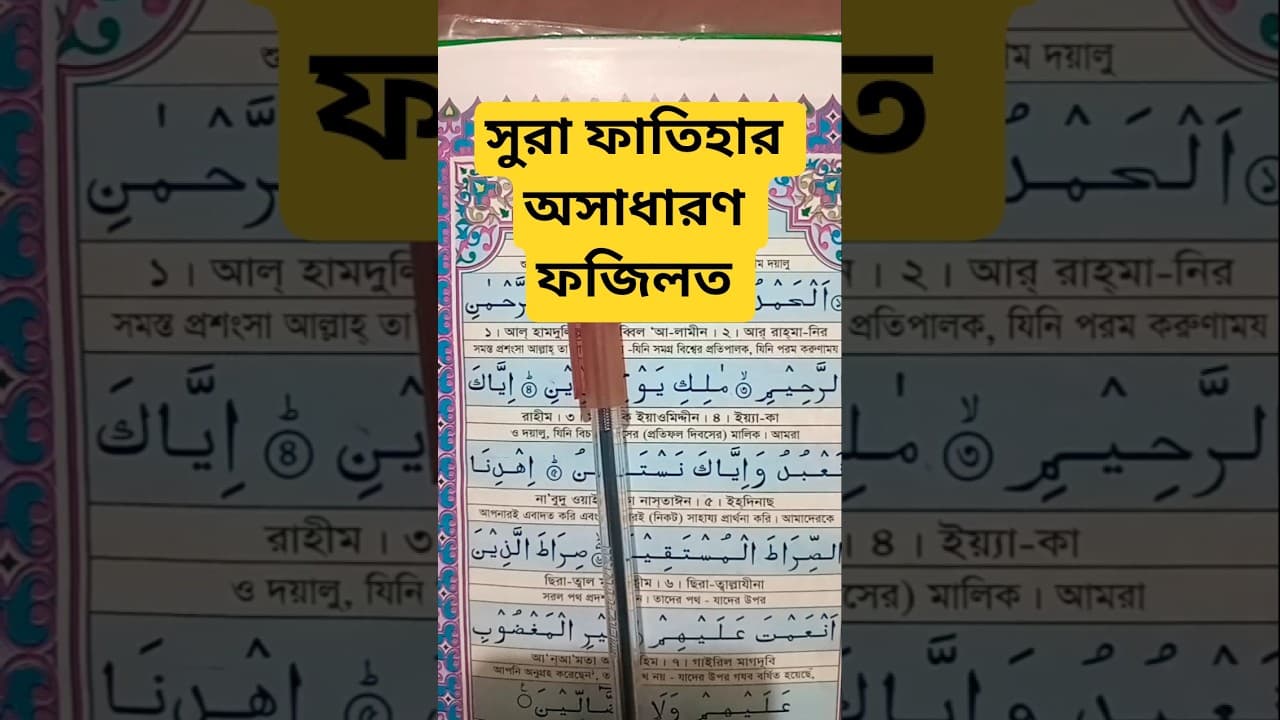 সুরা ফাতিহার
অসাধারণ
ফজিলত
ম দয়ালু
اَلْحَمْدُ
الرَّحْمٰنِ
১। আল হামদুলি ব্বিল ‘আ-লামীন। ২। আর্ রাহ্‌মা-নির
সমস্ত প্রশংসা আল্লাহ্ তা -যিনি সমগ্র বিশ্বের প্রতিপালক, যিনি পরম করুণাময়
الرَّحِيْمِ ۝٣ مٰلِكِ يَوْ يْنِ ۝٤ اِيَّاكَ
রাহীম। ৩। ক ইয়াওমিদ্দীন। ৪। ইয়্যা-কা
ও দয়ালু, যিনি বিচ সের (প্রতিফল দিবসের) মালিক। আমরা
نَعْبُدُ وَاِيَّاكَ نَسْتَ نُ ۝٥ اِهْدِنَا
না'বুদু ওয়াই নাস্‌তাঈন। ৫। ইহ্‌দিনাছ
আপনারই এবাদত করি এবং রই (নিকট) সাহায্য প্রার্থনা করি। আমাদেরকে
الصِّرَاطَ الْمُسْتَقِيْ صِرَاطَ الَّذِيْنَ
ছিরা-ত্বাল ম ীম। ৬। ছিরা-ত্বাল্লাযীনা
সরল পথ প্রদ ন। তাদের পথ - যাদের উপর
اَنْعَمْتَ عَلَيْهِمْ يْرِ الْمَغْضُوْبِ
আ'ন্‌আ'মতা আ হিম। ৭। গাইরিল মাগদূবি
আপনি অনুগ্রহ করেছেন, ত খ নয় - যাদের উপর গযব বর্ষিত হয়েছে,
عَلَيْهِمْ وَلَا الضَّالِّيْنَ